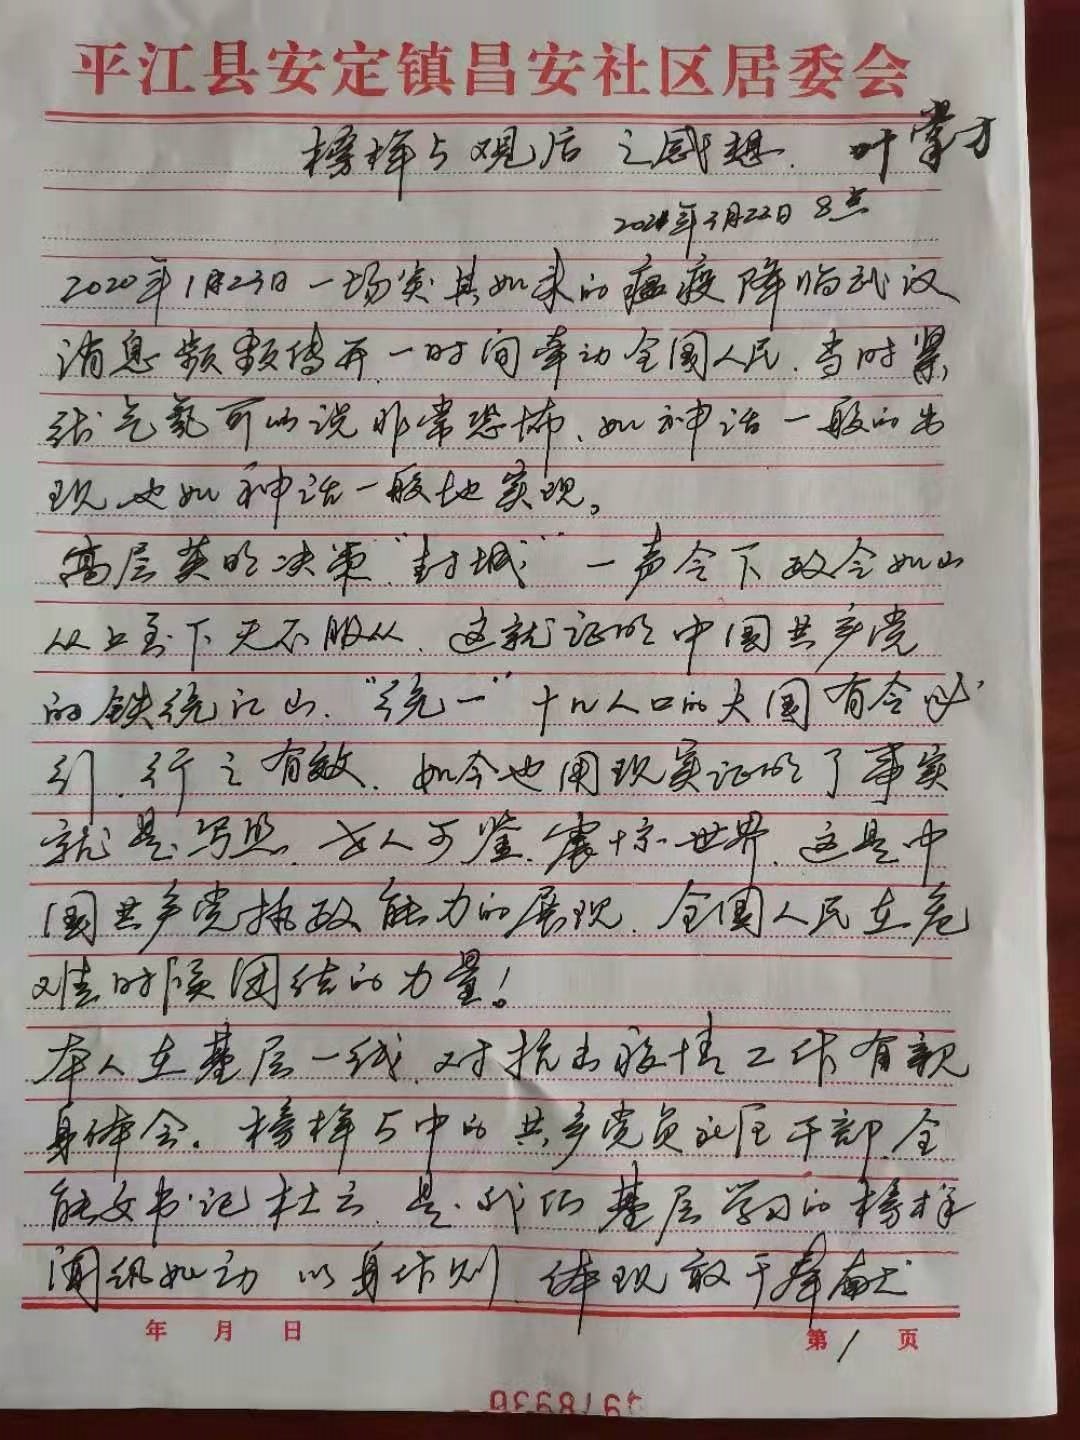 平江县安定镇昌安社区居委会
榜样5观后之感想. 叶掌方
2021年3月22日8点
2020年1月23日一场突其如来的瘟疫降临武汉
消息频频传开.一时间牵动全国人民.当时紧
张气氛可以说非常恐怖、如神话一般的出
现.也如神话一般地实现。
高层英明决策"封城"一声令下政令如山
从上至下无不服从.这就证明中国共产党
的铁统江山."统一"十几人口的大国有令必
引.行之有效.如今也用现实证明了事实
就是写照.世人可鉴.震惊世界.这是中
国共产党执政能力的展现.全国人民在危
难时候团结的力量!
本人在基层一线.对抗击疫情工作有亲
身体会.榜样5中的共产党员社区干部.全
能女书记杜云.是我们基层学习的榜样
闻讯如动 以身作则.体现敢于奉献
年 月 日
第1页